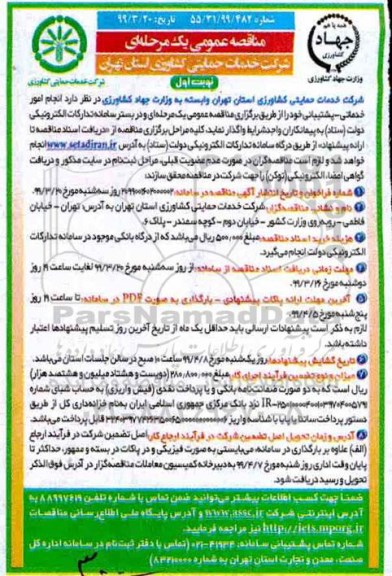 شماره ۵۵/۳۱/۹۹/۴۸۲ تاریخ: ۹۹/۳/۲۰
مناقصه عمومی یک مرحله‌ای
شرکت خدمات حمایتی کشاورزی استان تهران
نوبت اول
جهاد
کشاورزی
وزارت جهاد کشاورزی
شرکت خدمات حمایتی کشاورزی
شرکت خدمات حمایتی کشاورزی استان تهران وابسته به وزارت جهاد کشاورزی در نظر دارد انجام امور
خدماتی-پشتیبانی خود را از طریق برگزاری مناقصه عمومی یک مرحله‌ای و در بستر سامانه تدارکات الکترونیکی
دولت (ستاد) به پیمانکاران واجد شرایط واگذار نماید. کلیه مراحل برگزاری مناقصه از «دریافت اسناد مناقصه تا
ارائه پیشنهاد» از طریق درگاه سامانه تدارکات الکترونیکی دولت (ستاد) به آدرس www.setadiran.ir انجام
خواهد شد و لازم است مناقصه‌گران در صورت عدم عضویت قبلی، مراحل ثبت‌نام در سایت مذکور و دریافت
گواهی امضاء الکترونیکی (توکن) را جهت شرکت در مناقصه محقق سازند:
شماره فراخوان و تاریخ انتشار آگهی مناقصه در سامانه: روز سه‌شنبه مورخ ۹۹/۳/۲۰
نام و نشانی مناقصه‌گزار: شرکت خدمات حمایتی کشاورزی استان تهران به آدرس: تهران - خیابان
فاطمی - روبه‌روی وزارت کشور - خیابان دوم - کوچه سمندر - پلاک ۶.
هزینه خرید اسناد مناقصه: مبلغ ۵۰۰/۰۰۰ ریال می‌باشد که از درگاه بانکی موجود در سامانه تدارکات
الکترونیکی دولت انجام می‌گیرد.
مهلت زمانی دریافت اسناد مناقصه از سامانه: از روز سه‌شنبه مورخ ۹۹/۳/۲۰ لغایت ساعت ۱۹ روز
دوشنبه مورخ ۹۹/۳/۲۶
آخرین مهلت ارائه پاکات پیشنهادی - بارگذاری به صورت PDF در سامانه: تا ساعت ۱۹ روز
پنج‌شنبه مورخ ۹۹/۴/۵
لازم به ذکر است پیشنهادات ارسالی باید حداقل یک ماه از تاریخ آخرین روز تسلیم پیشنهادها اعتبار
داشته باشد.
تاریخ گشایش پیشنهادها: روز یک‌شنبه مورخ ۹۹/۴/۸ ساعت ۱۰ صبح در سالن جلسات استان می‌باشد.
میزان و نحوه تضمین فرآیند اجرای کار: مبلغ ۲۸۰/۸۰۰/۰۰۰ (دویست و هشتاد میلیون و هشتصد هزار)
ریال است که به دو صورت ضمانت‌نامه بانکی و یا پرداخت نقدی (فیش واریزی) به حساب شبای شماره
نزد بانک مرکزی جمهوری اسلامی ایران به‌نام خزانه‌داری کل از طریق
دستور پرداخت ساتنا یا پایا با شناسه واریز قابل پرداخت می‌باشد.
آدرس و زمان تحویل اصل تضمین شرکت در فرآیند ارجاع کار: اصل تضمین شرکت در فرآیند ارجاع
(الف) علاوه بر بارگذاری در سامانه، می‌بایستی به صورت فیزیکی و در پاکات در بسته و ممهور، حداکثر تا
پایان وقت اداری روز شنبه مورخ ۹۹/۴/۷ به دبیرخانه کمیسیون معاملات مناقصه‌گزار در آدرس فوق‌الذکر
تحویل و رسید دریافت شود.
ضمنا جهت کسب اطلاعات بیشتر می‌توانید ضمن تماس با شماره تلفن ۸۸۹۹۷۶۱۹ به
آدرس اینترنتی شرکت www.assc.ir و آدرس پایگاه ملی اطلاع رسانی مناقصات
http://iets.mporg.ir نیز مراجعه فرمایید.
شماره تماس پشتیبانی سامانه: ۴۱۹۳۴-۰۲۱ (تماس با دفتر ثبت‌نام در سامانه اداره کل
صنعت، معدن و تجارت استان تهران به شماره
ParsNamadData